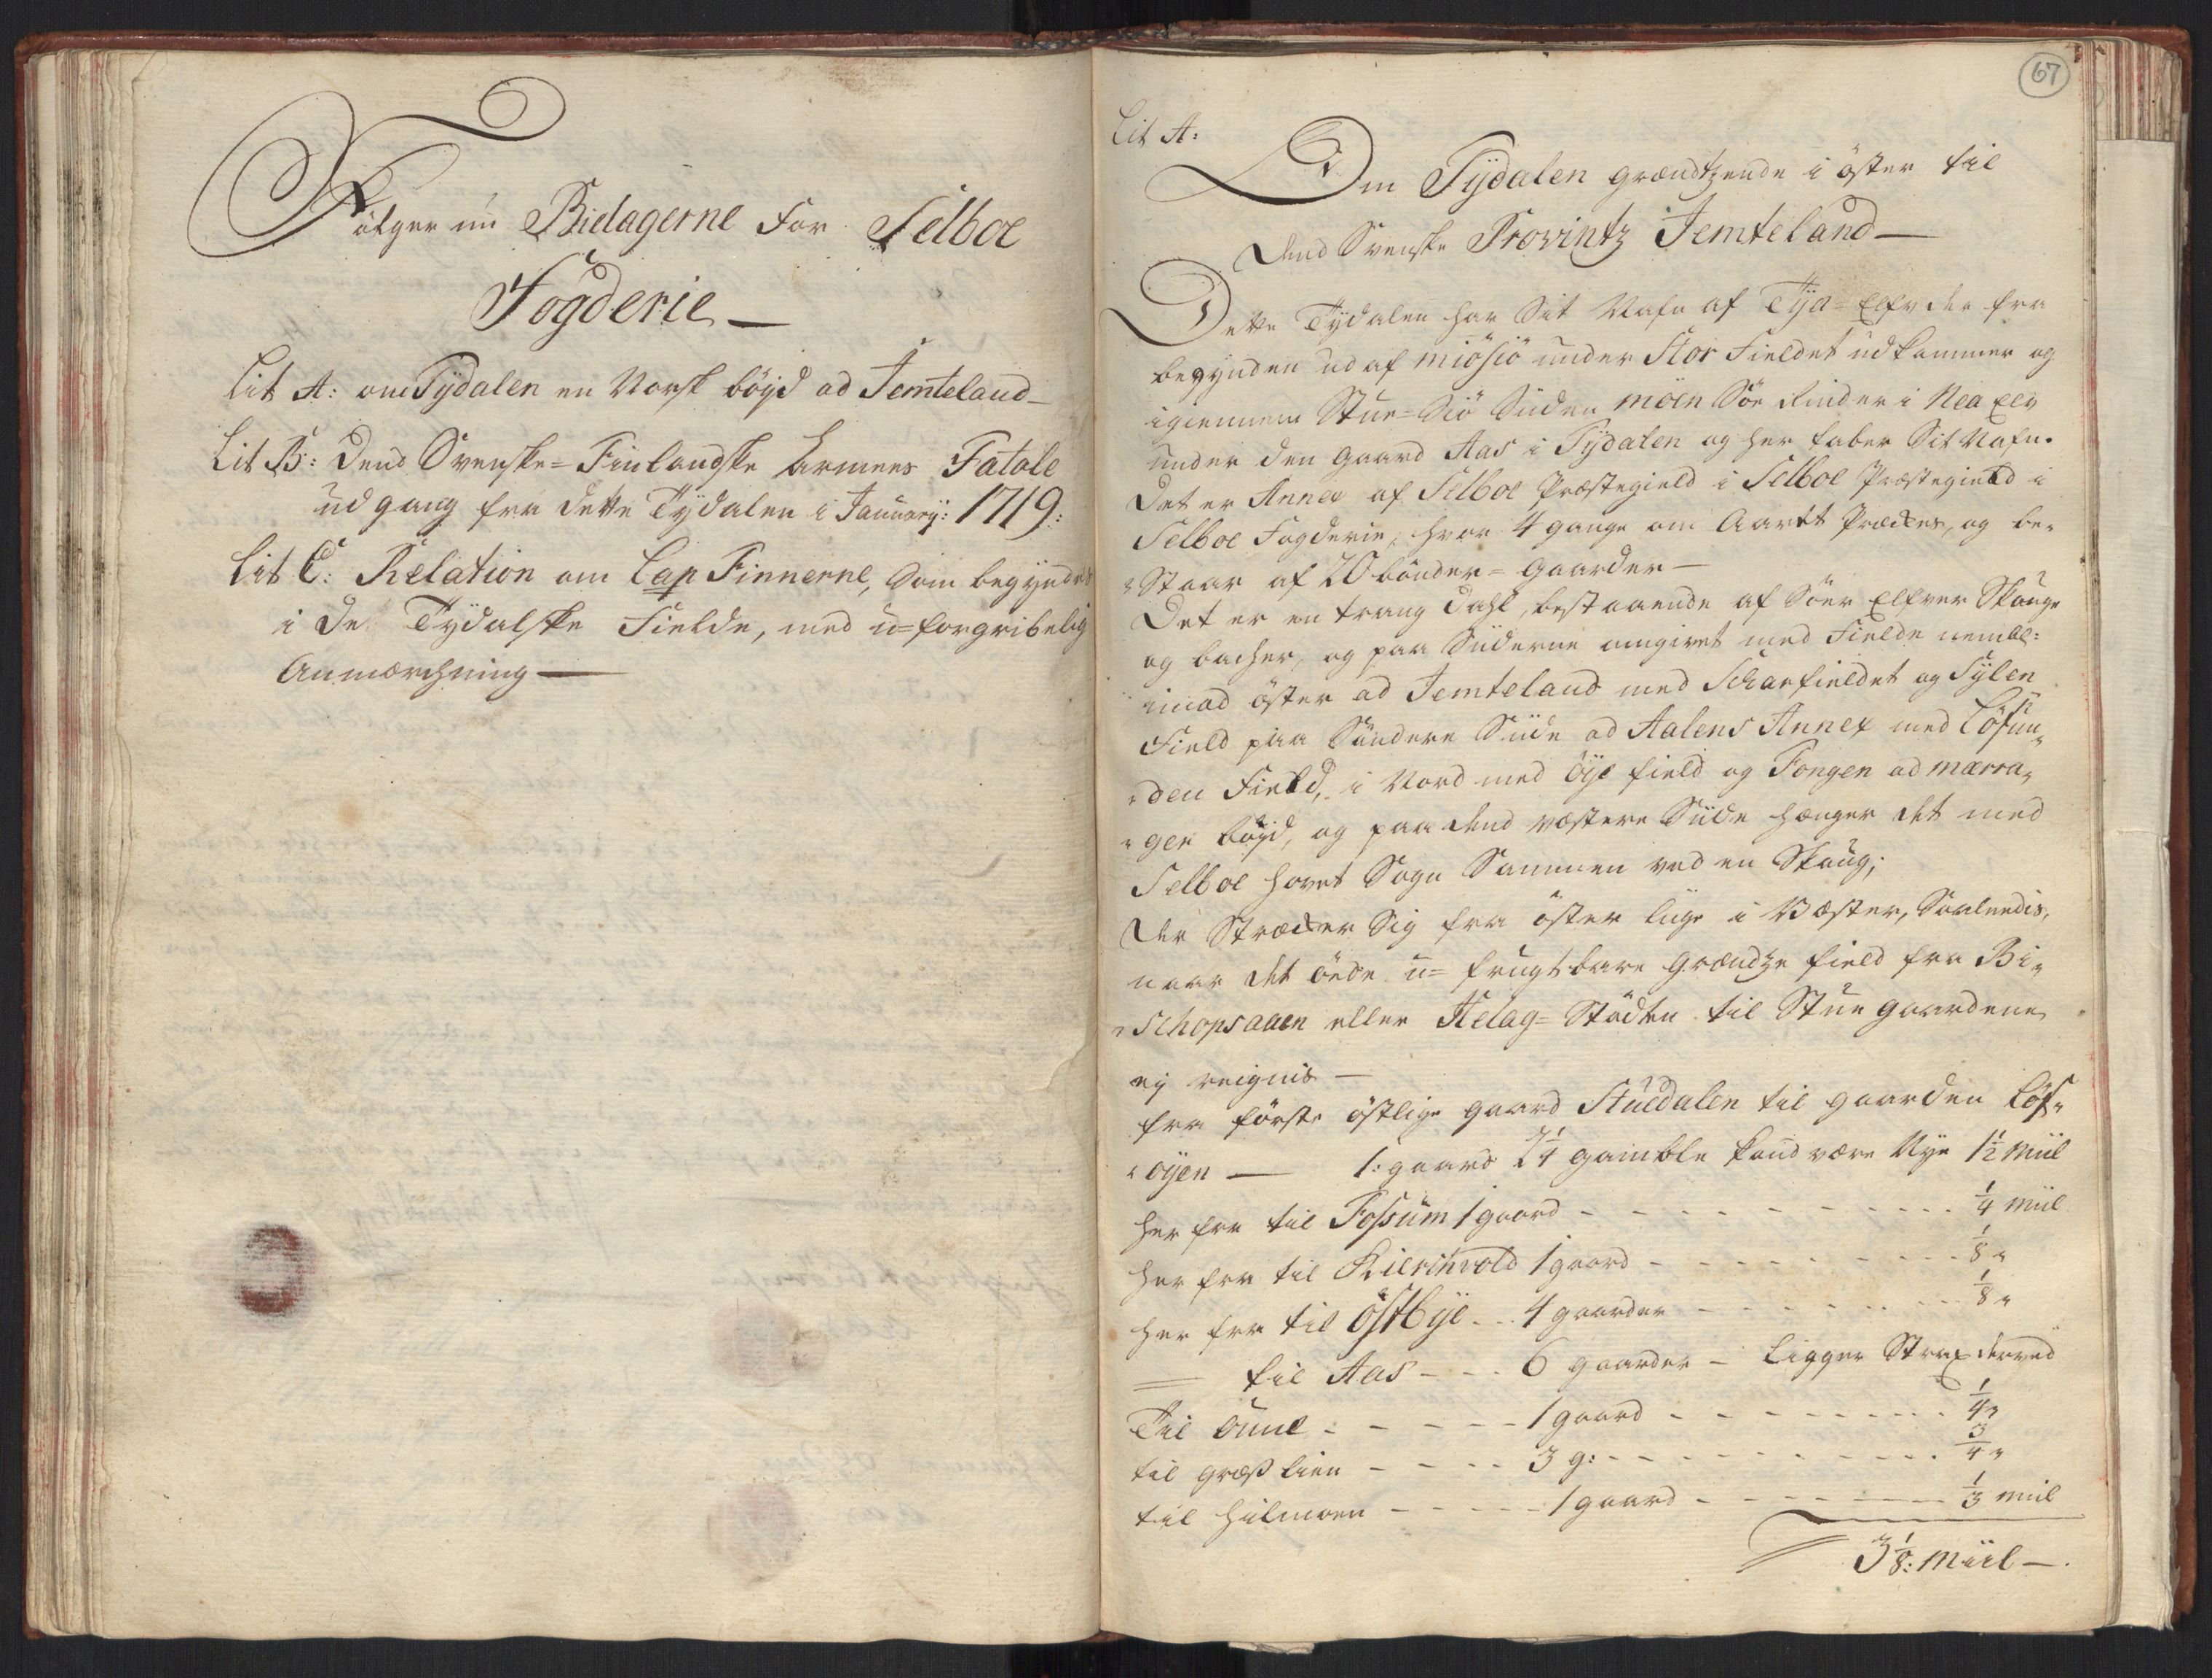 Fölger nu Bielagerne for Selboe
Fogderie —
Lit A: om Tydalen en Norsk böyd ad Jemteland —
Lit B: Dend Svenske=Finlandske Armees Fatale
udgang fra dette Tydalen i January: 1719:
Lit C: Relation om Lap Finnerne, som begyndes
i de Tydalske Fielde, med u=forgribelig
Anmærchning —
67
Lit A:
Om Tydalen grændtzende i öster til
dend Svenske Provintz Jemteland —
Dette Tydalen har Sit Nafn af Tya=Elfv der fra
begynden ud af miösiö under Stor Fieldet udkommer og
igiennem Stue=Siö Siden möen Söe Rinder i Nea Elv
under den gaard Aas i Tydalen og her taber Sit Nafn.
Det er Annex af Selboe Præstegield i Selboe Præstegield i
Selboe Fogderie, hvor 4 gange om Aaret Prædikes, og be-
staar af 20 bönder=gaarder —
Det er en trang Dahl, bestaaende af Söer Elfver Skouge
og backer, og paa Siiderne omgivet med Fielde nembl:
imod öster ad Jemteland med Skarfieldet og Sylen
Field paa Söndere Siide ad Aalens Annex med Löfün-
den Field, i Nord med öye field og Fongen ad mærra-
ger böyd, og paa dend væstere Siide hænger det med
Selboe hovet Sogn Sammen ved en Skoug;
Der Strecker Sig fra öster lige i Væster, Saaledis,
naar det öede u=frugtbare grændtze field fra Bi-
schopsaaen eller Helag=Stödten til Stuegaardene
ey reignis —
fra förste östlige gaard Stuedalen til gaarden Löf-
öyen — 1: gaard 2 1/4 gamble kand være Nye 1 1/2 Miil
her fra til Fossum 1 gaard - - - - 1/4 miil
her fra til Kierchvold 1 gaard - - - - 1/8 "
her fra til östbye - - 4 gaarder - - - - 1/8 "
— til Aas - - - 6 gaarder - Ligger Strax derved
Til Ünne - - - - 1 gaard - - - - 1/4 "
til græslien - - - - 3 g: - - - - 3/4 "
til Hilmoen - - - - 1 gaard - - - - 1/3 miil
3 1/8: Miil —